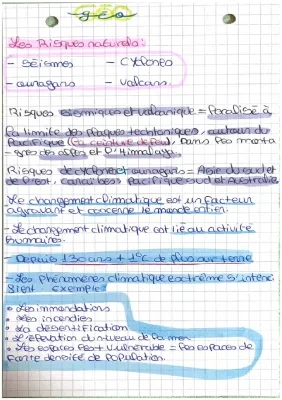 géo
Les Risques naturels :
- Séismes - Cyclones
- ouragans - Volcans.
Risques sismiques et volcanique = localisé à
la limite des plaques techtoniques, autour du
Pacifique (la ceinture de feu), Dans les monta
-gnes des alpes et l'Himalaya.
Risques de cyclones et ouragans = Asie du sud et
de l'est, caraïbes, Pacifique sud et Australie
Le changement climatique est un facteur
agravant et concerne le monde entier.
- Le changement climatique est lié au activité
humaines.
- Depuis 130 ans + 1°C de plus sur terre
- Les phénomènes climatique extrême s'intensi
fient exemple :
• Les innondations
• Les incendies
• La désertification
• L'élévation du niveau de la mer
• Les espaces les + vulnérable = les espaces de
forte densité de Population.